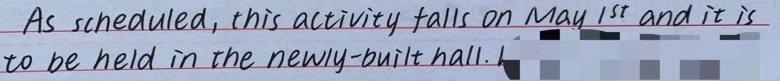 As scheduled, this activity falls on May 1st and it is
to be held in the newly-built hall.